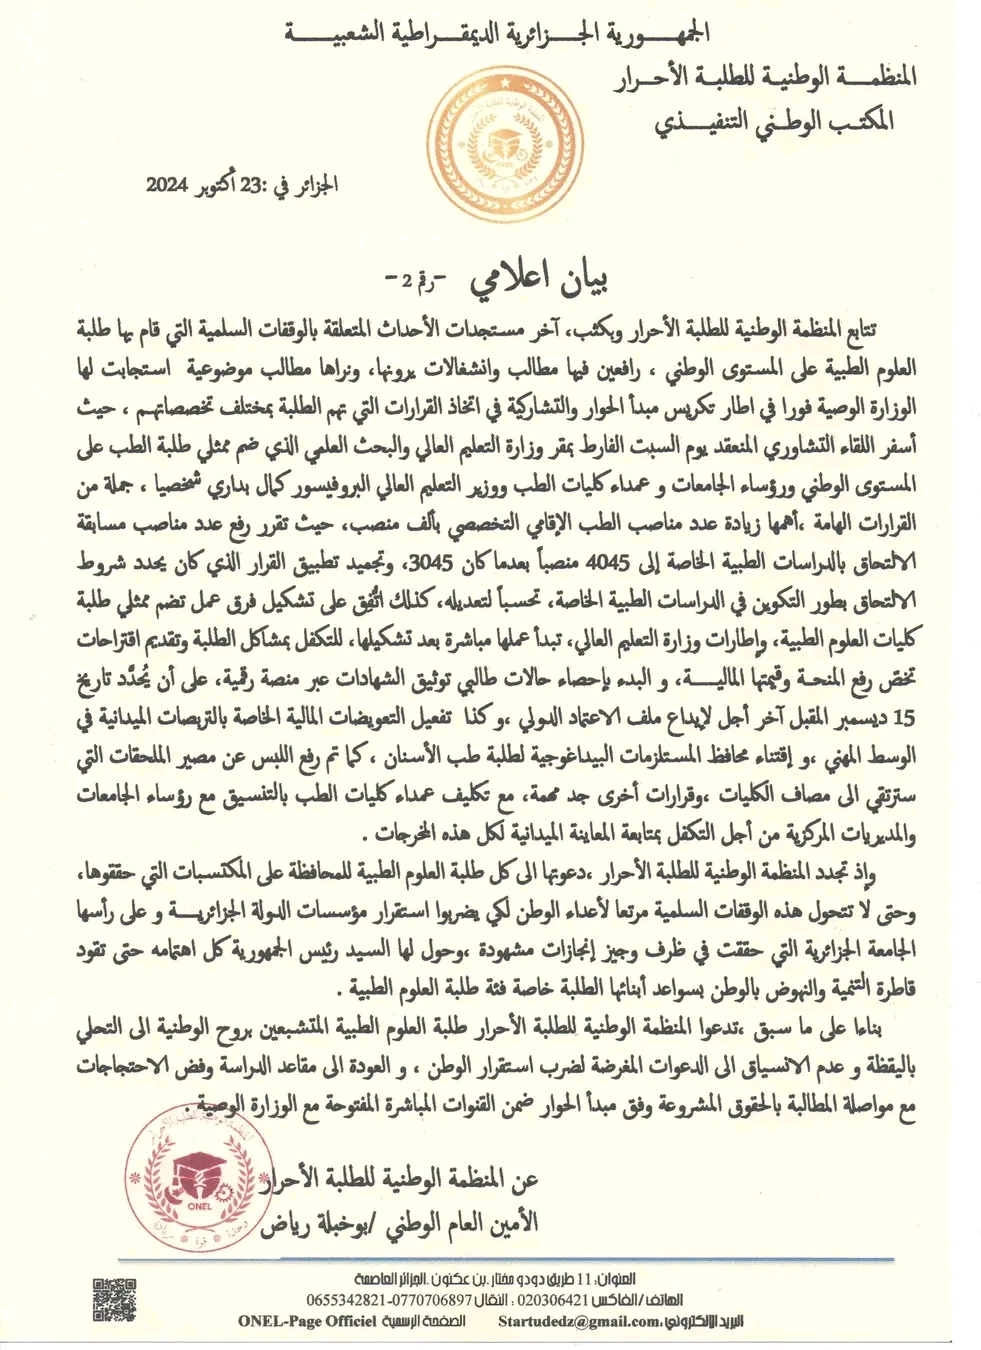 الجمهـــورية الجـــزائرية الديمقـــراطية الشعبيـــة
المنظمـــة الوطنيـة للطلبـة الأحـــرار
المكتـب الوطـني التنفيـــذي
الجزائر في :23 أكتوبر 2024
بيان اعلامي -رقم 2-
تتابع المنظمة الوطنية للطلبة الأحرار وبكثب، آخر مستجدات الأحداث المتعلقة بالوقفات السلمية التي قام بها طلبة
العلوم الطبية على المستوى الوطني ، رافعين فيها مطالب وانشغالات يرونها، ونراها مطالب موضوعية استجابت لها
الوزارة الوصية فورا في اطار تكريس مبدأ الحوار والتشاركية في اتخاذ القرارات التي تهم الطلبة بمختلف تخصصاتهم ، حيث
أسفر اللقاء التشاوري المنعقد يوم السبت الفارط بمقر وزارة التعليم العالي والبحث العلمي الذي ضم ممثلي طلبة الطب على
المستوى الوطني ورؤساء الجامعات و عمداء كليات الطب ووزير التعليم العالي البروفيسور كمال بداري شخصيا ، جملة من
القرارات الهامة ،أهمها زيادة عدد مناصب الطب الإقامي التخصصي بألف منصب، حيث تقرر رفع عدد مناصب مسابقة
الالتحاق بالدراسات الطبية الخاصة إلى 4045 منصباً بعدما كان 3045، وتجميد تطبيق القرار الذي كان يحدد شروط
الالتحاق بطور التكوين في الدراسات الطبية الخاصة، تحسباً لتعديله، كذلك اتُّفِق على تشكيل فرق عمل تضم ممثلي طلبة
كليات العلوم الطبية، وإطارات وزارة التعليم العالي، تبدأ عملها مباشرة بعد تشكيلها، للتكفل بمشاكل الطلبة وتقديم اقتراحات
تخصّ رفع المنحة وقيمتها الماليـــة، و البدء بإحصاء حالات طالبي توثيق الشهادات عبر منصة رقمية، على أن يُحدَّد تاريخ
15 ديسمبر المقبل آخر أجل لإيداع ملف الاعتماد الدولي ،و كذا تفعيل التعويضات المالية الخاصة بالتربصات الميدانية في
الوسط المهني ،و إقتناء محافظ المستلزمات البيداغوجية لطلبة طب الأسنان ، كما تم رفع اللبس عن مصير الملحقات التي
سترتقي الى مصاف الكليات ،وقرارات أخرى جد مهمة، مع تكليف عمداء كليات الطب بالتنسيق مع رؤساء الجامعات
والمديريات المركزية من أجل التكفل بمتابعة المعاينة الميدانية لكل هذه المخرجات .
وإذ تجدد المنظمة الوطنية للطلبة الأحرار ،دعوتها الى كل طلبة العلوم الطبية للمحافظة على المكتسبات التي حققوها،
وحتى لا تتحول هذه الوقفات السلمية مرتعا لأعداء الوطن لكي يضربوا استقرار مؤسسات الدولة الجزائريـــة و على رأسها
الجامعة الجزائرية التي حققت في ظرف وجيز إنجازات مشهودة ،وحول لها السيد رئيس الجمهورية كل اهتمامه حتى تقود
قاطرة التنمية والنهوض بالوطن بسواعد أبنائها الطلبة خاصة فئة طلبة العلوم الطبية .
بناءا على ما سبق ،تدعوا المنظمة الوطنية للطلبة الأحرار طلبة العلوم الطبية المتشبعين بروح الوطنية الى التحلي
باليقظة و عدم الانسياق الى الدعوات المغرضة لضرب استقرار الوطن ، و العودة الى مقاعد الدراسة وفض الاحتجاجات
مع مواصلة المطالبة بالحقوق المشروعة وفق مبدأ الحوار ضمن القنوات المباشرة المفتوحة مع الوزارة الوصية .
عن المنظمة الوطنية للطلبة الأحرار
الأمين العام الوطني /بوخبلة رياض
ONEL
العنوان: 11 طريق دودو مختار .بن عكنون .الجزائر العاصمة
الهاتف /الفاكس 020306421 : النقال 0770706897-0655342821
البريد الالكتروني:Startudedz@gmail.com الصفحة الرسمية ONEL-Page Officiel